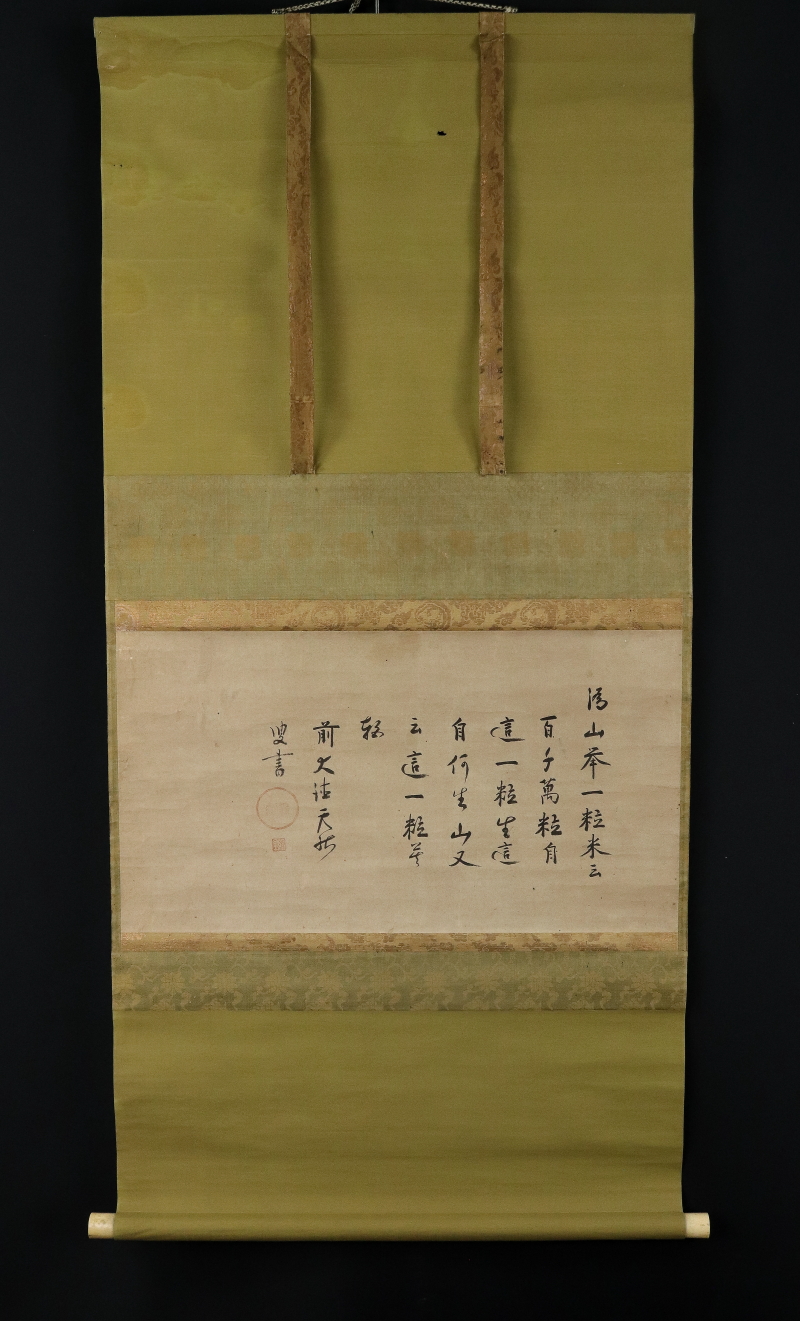 溈山举一粒米云
百千萬粒自
這一粒生這
自何生山又
云這一粒莫
軽
前大徳
叟書